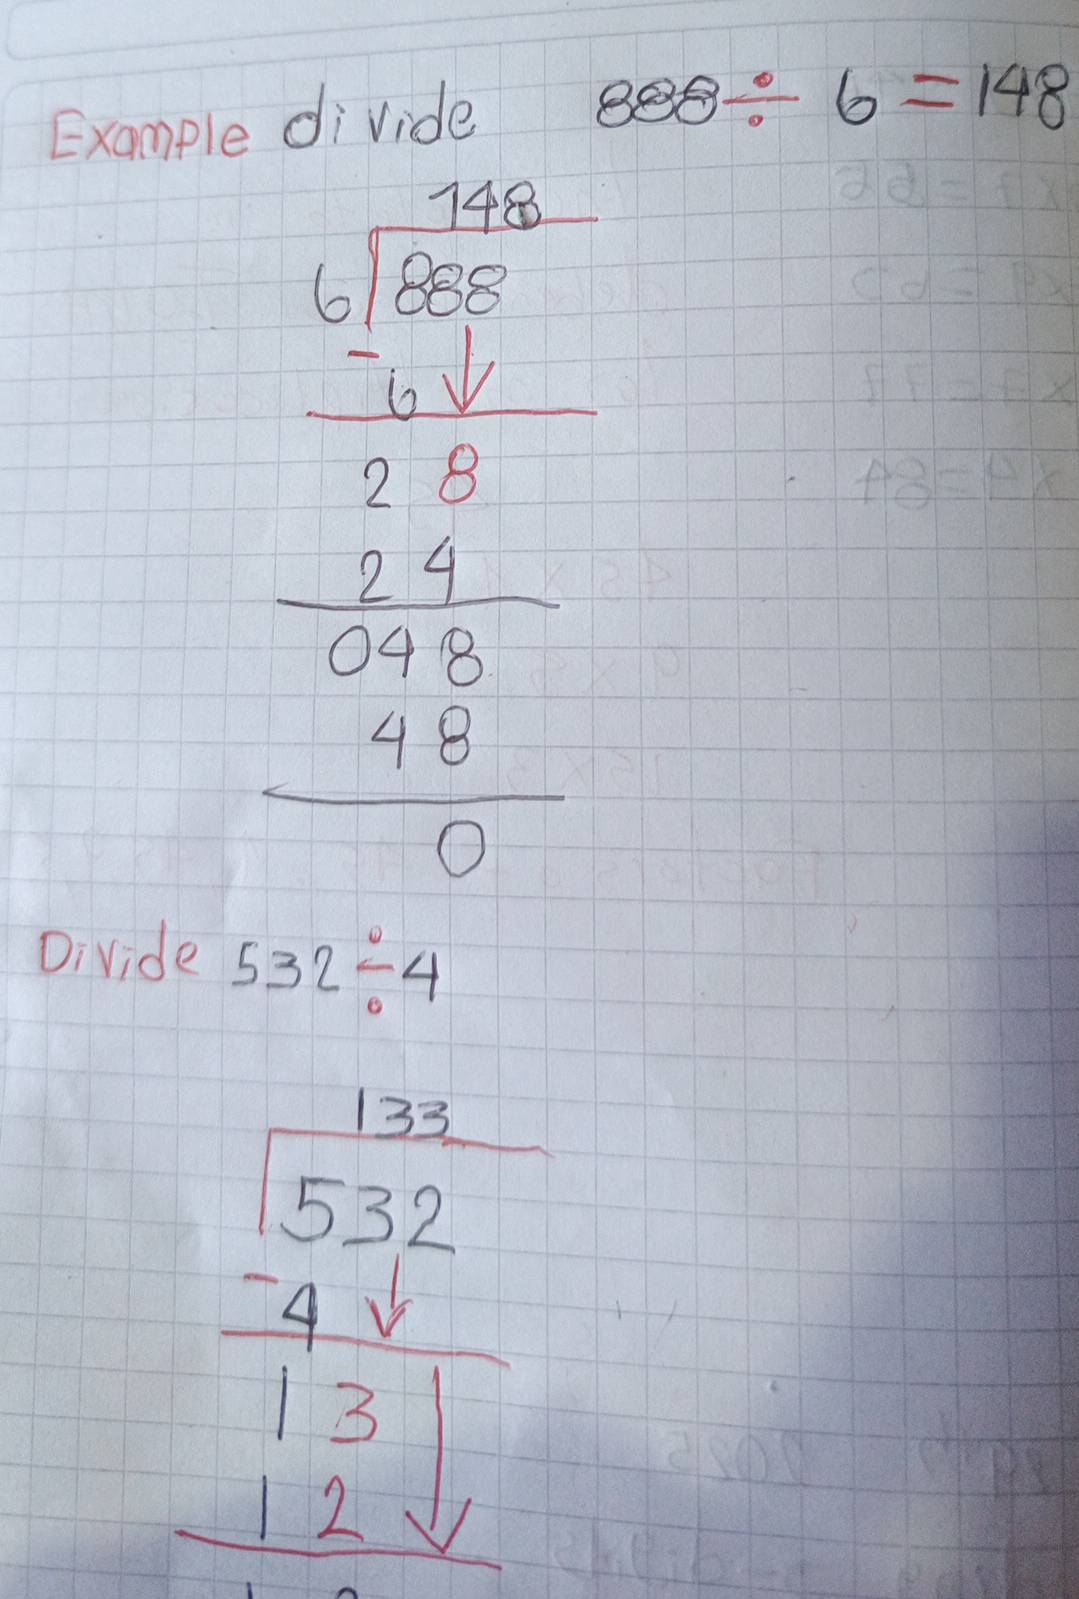 Example divide 888 ÷ 6 = 148
148
6 888
- 6
2 8
2 4
048
4 8
0
Divide 532 ÷ 4
133
532
- 4
1 3
1 2